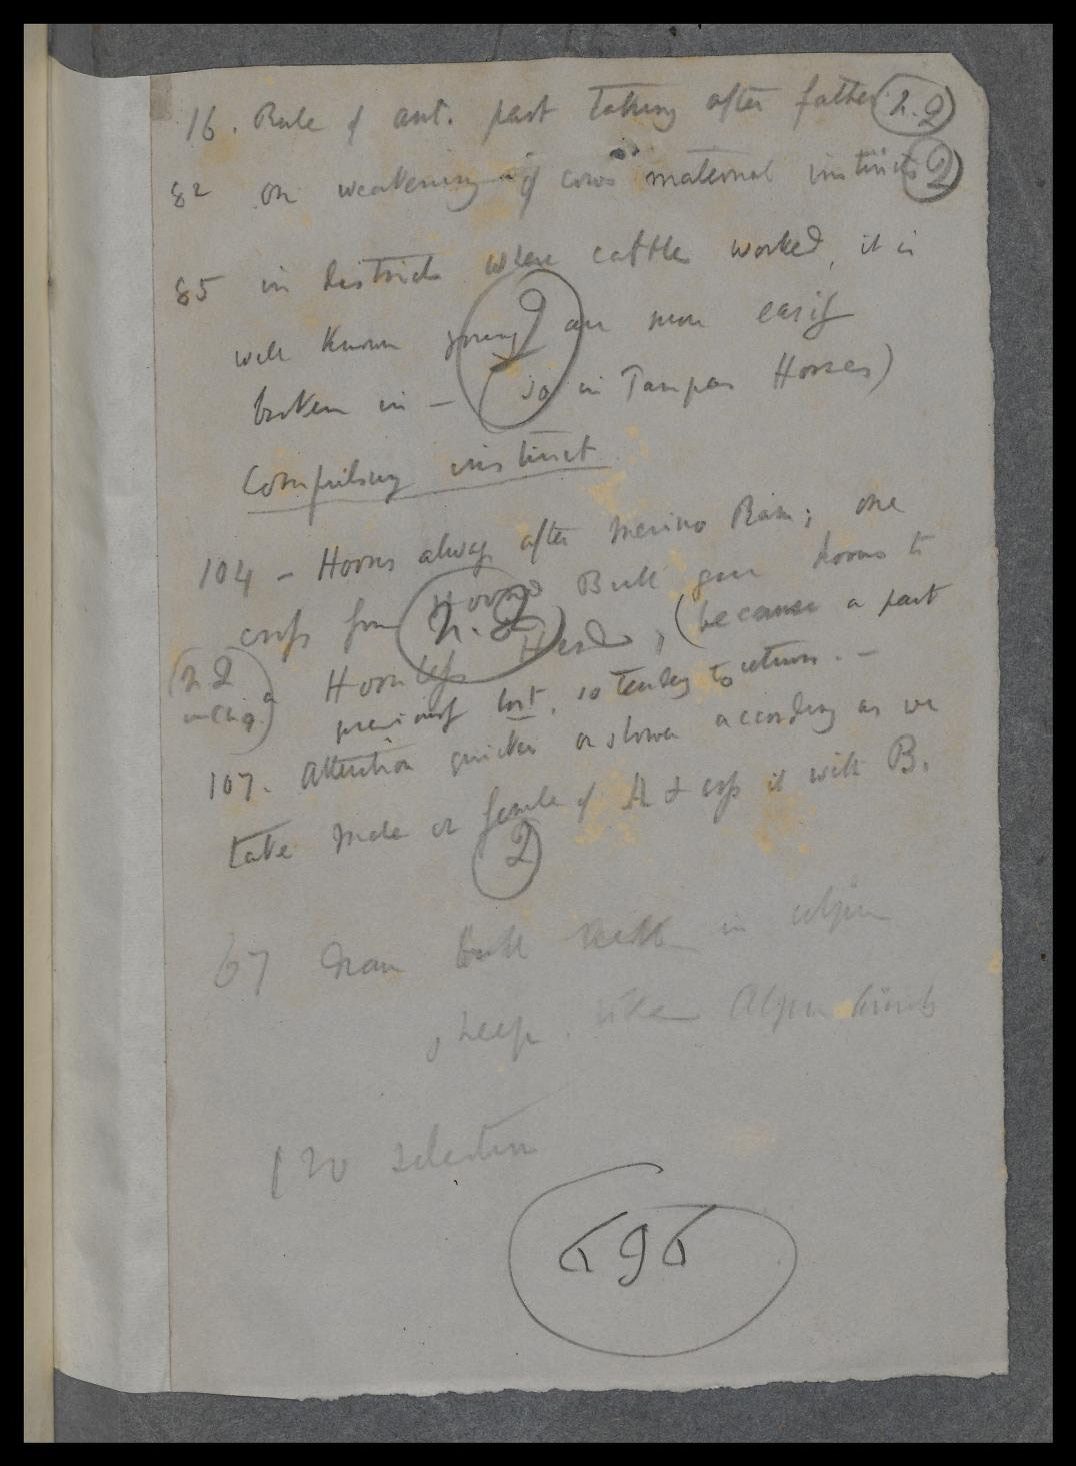 16. Rule of ant. part taking after father (2.2)
82 on weakening of cows maternal instincts (2)
85 in districts where cattle worked, it is
well known young are more easily
broken in — (so in Pampas Horses)
Compulsory instinct
104 — Horns always after Merino Ram; one
cross from Horned Bull gave horns to
a Hornless Herd, (because a part
previously lost, so tendency to return. —
107. Alteration quicker or slower according as we
take male or female of A & cross it with B.
(2)
67 bull in Alpine
sheep. like Alpine
120 selection
696